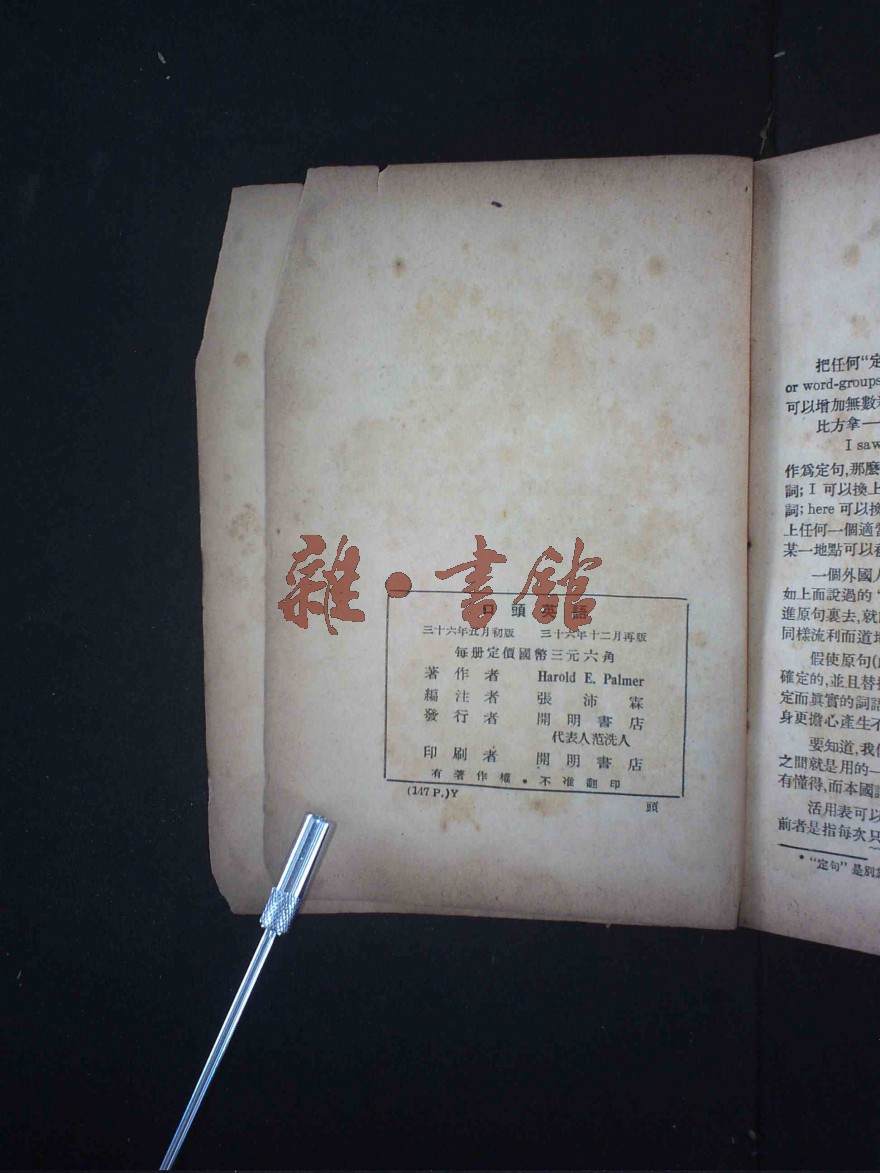 雜·書館
口頭英語
三十六年五月初版 三十六年十二月再版
每册定價國幣三元六角
著作者 Harold E. Palmer
編注者 張沛霖
發行者 開明書店
代表人范洗人
印刷者 開明書店
有著作權·不准翻印
(147 P.)Y 頭
把任何“定
or word-groups
可以增加無數
比方拿一
I saw
作爲定句,那麼
詞; I 可以換上
詞; here 可以換
上任何一個適當
某一地點可以
一個外國人
如上面說過的“
進原句裏去,就
同樣流利而道地
假使原句(
確定的,並且替
定而眞實的詞語
身更擔心產生不
要知道,我們
之間就是用的一
有懂得,而本國
活用表可以
前者是指每次只
* “定句”是別